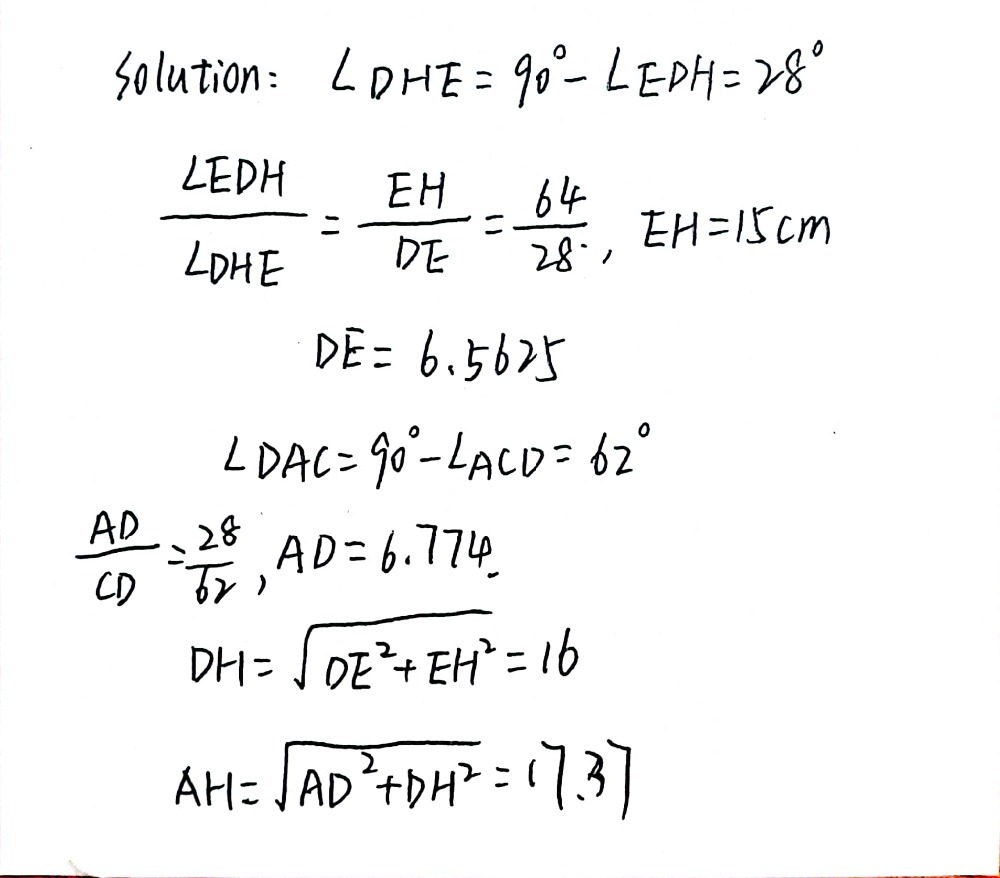 Solution: ∠DHE = 90° - ∠EDH = 28°
∠EDH / ∠DHE = EH / DE = 64 / 28, EH = 15cm
DE = 6.5625
∠DAC = 90° - ∠ACD = 62°
AD / CD = 28 / 62, AD = 6.774
DH = √(DE² + EH²) = 16
AH = √(AD² + DH²) = 17.37